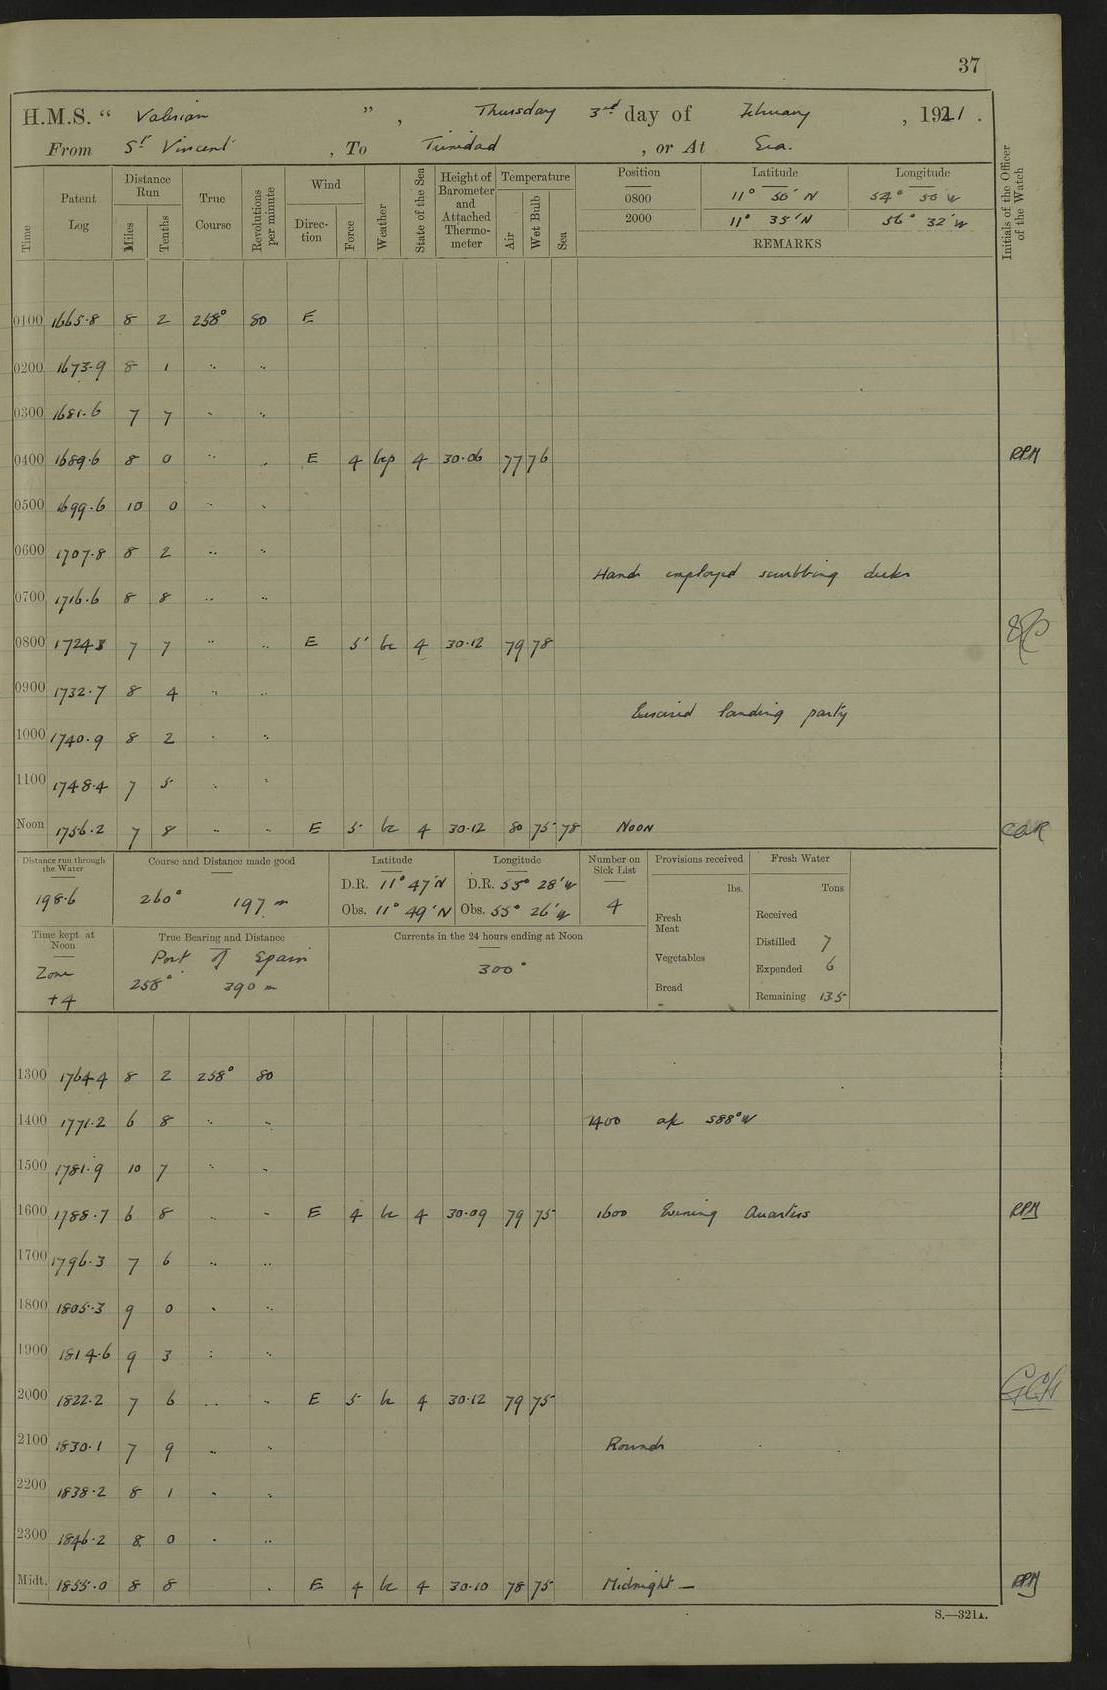 37
H.M.S. " Valerian ", Thursday 3rd day of February, 1921.
From St Vincent, To Trinidad, or At Sea.
Time Patent Log Distance Run Miles Tenths True Course Revolutions per minute Wind Direction Force Weather State of the Sea Height of Barometer and Attached Thermometer Temperature Air Wet Bulb Sea Position Latitude Longitude Initials of the Officer of the Watch
0800 11° 50' N 54° 50' W
2000 11° 35' N 56° 32' W
REMARKS
0100 1665.8 8 2 258° 80 E
0200 1673.9 8 1 " "
0300 1681.6 7 7 " "
0400 1689.6 8 0 " " E 4 bcp 4 30.06 77 76 RPM
0500 1699.6 10 0 " "
0600 1707.8 8 2 " "
Hands employed scrubbing decks
0700 1716.6 8 8 " "
0800 1724.3 7 7 " " E 5 bc 4 30.12 79 78
0900 1732.7 8 4 " "
Exercised landing party
1000 1740.9 8 2 " "
1100 1748.4 7 5 " "
Noon 1756.2 7 8 " " E 5 bc 4 30.12 80 75 78 NOON
Distance run through the Water 198.6
Course and Distance made good 260° 197 m
Latitude D.R. 11° 47' N Obs. 11° 49' N
Longitude D.R. 55° 28' W Obs. 55° 26' W
Number on Sick List 4
Provisions received lbs. Fresh Meat Vegetables Bread -
Fresh Water Tons Received Distilled 7 Expended 6 Remaining 135
Time kept at Noon Zone +4
True Bearing and Distance Port of Spain 258° 390 m
Currents in the 24 hours ending at Noon 300°
1300 1764.4 8 2 258° 80
1400 1771.2 6 8 " " 1400 a/c S88°W
1500 1781.9 10 7 " "
1600 1788.7 6 8 " " E 4 bc 4 30.09 79 75 1600 Evening Quarters RPM
1700 1796.3 7 6 " "
1800 1805.3 9 0 " "
1900 1814.6 9 3 " "
2000 1822.2 7 6 " " E 5 bc 4 30.12 79 75 GCH
2100 1830.1 7 9 " " Rounds
2200 1838.2 8 1 " "
2300 1846.2 8 0 " "
Midt. 1855.0 8 8 " E 4 bc 4 30.10 78 75 Midnight — RPM
S.—321A.